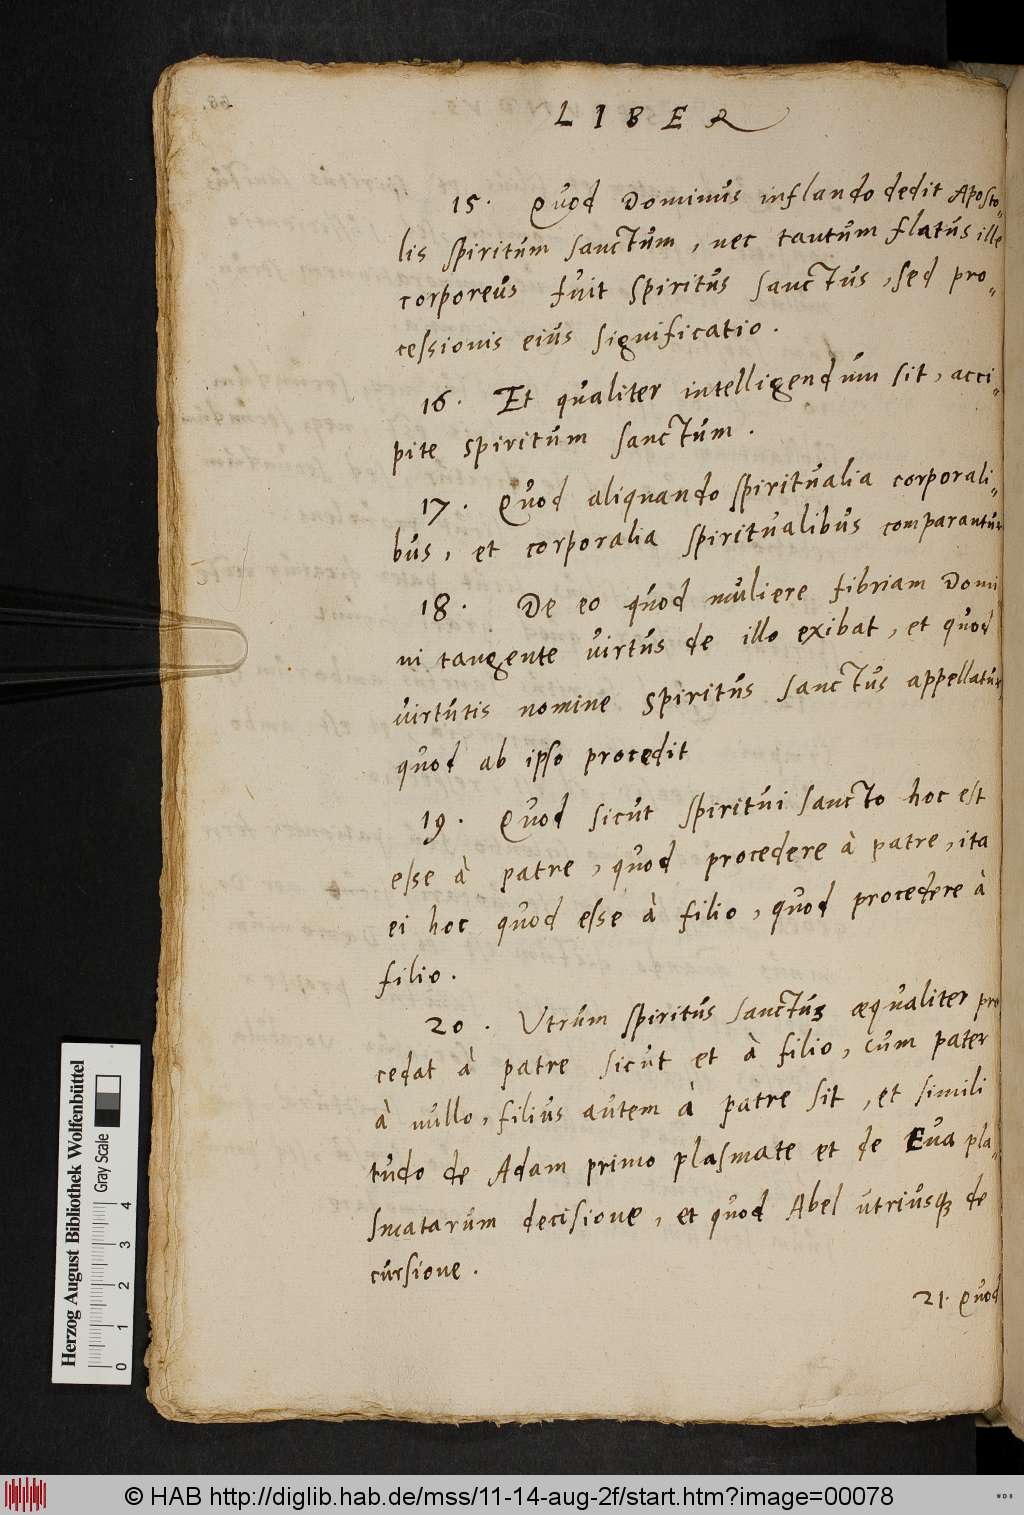 LIBER
15. Quod Dominus inflando dedit Aposto„
lis spiritum sanctum, nec tantum flatus ille
corporeus fuit spiritus sanctus, sed pro„
cessionis eius significatio.
16. Et qualiter intelligendum sit, acci„
pite spiritum sanctum.
17. Quod aliquando spiritualia corporali„
bus, et corporalia spiritualibus comparantur
18. De eo quod muliere fibriam Domi
ni tangente virtus de illo exibat, et quod
virtutis nomine spiritus sanctus appellatur
quod ab ipso procedit
19. Quod sicut spiritui sancto hoc est
esse à patre, quod procedere à patre, ita
ei hoc quod esse à filio, quod procedere à
filio.
20. Vtrum spiritus sanctus æqualiter pro
cedat à patre sicut et à filio, cum pater
à nullo, filius autem à patre sit, et simili
tudo de Adam primo plasmate et de Eua pla„
smatarum decisione, et quod Abel utriusq de
cursione.
21. Quod
Herzog August Bibliothek Wolfenbüttel
Gray Scale
0 1 2 3 4
© HAB http://diglib.hab.de/mss/11-14-aug-2f/start.htm?image=00078